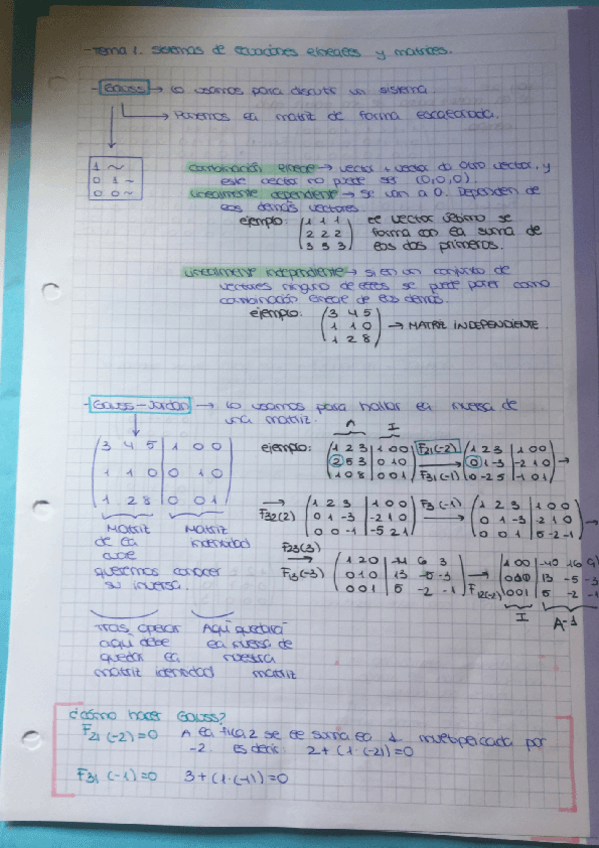 -Tema 1. Sistemas de ecuaciones lineales y matrices.
- Gauss → lo usamos para discutir un sistema.
→ Ponemos la matriz de forma escalonada.
1 ~
0 1 ~
0 0 ~
combinación lineal → vector + vector da otro vector, y
este vector no puede ser (0,0,0).
Linealmente dependiente → se van a 0. Dependen de
los demás vectores.
ejemplo: (1 1 1) el vector último se
(2 2 2) forma con la suma de
(3 3 3) los dos primeros.
Linealmente independiente → si en un conjunto de
vectores ninguno de ellos se puede poner como
combinación lineal de los demás.
ejemplo: (3 4 5)
(1 1 0) → MATRIZ INDEPENDIENTE.
(1 2 8)
- Gauss-Jordan → lo usamos para hallar la inversa de
una matriz.
A I
(3 4 5 | 1 0 0)
(1 1 0 | 0 1 0)
(1 2 8 | 0 0 1)
Matriz de la cual queremos conocer su inversa.
Matriz identidad
Tras operar aquí debe quedar la matriz identidad
Aquí quedará la inversa de nuestra matriz
ejemplo: (1 2 3 | 1 0 0) F21(-2) (1 2 3 | 1 0 0)
(2 5 3 | 0 1 0) → (0 1 -3 | -2 1 0) →
(1 0 8 | 0 0 1) F31(-1) (0 -2 5 | -1 0 1)
→ (1 2 3 | 1 0 0) F3(-1) (1 2 3 | 1 0 0)
F32(2) (0 1 -3 | -2 1 0) → (0 1 -3 | -2 1 0) →
(0 0 -1 | -5 2 1) (0 0 1 | 5 -2 -1)
F23(3) (1 2 0 | -14 6 3) → (1 0 0 | -40 16 9)
→ (0 1 0 | 13 -5 -3) (0 1 0 | 13 -5 -3)
F13(-3) (0 0 1 | 5 -2 -1) F12(-2) (0 0 1 | 5 -2 -1)
I A-1
¿cómo hacer Gauss?
F21 (-2)=0 A la fila 2 se le suma la 1 multiplicada por
-2. es decir 2+(1·(-2))=0
F31 (-1)=0 3+(1·(-1))=0